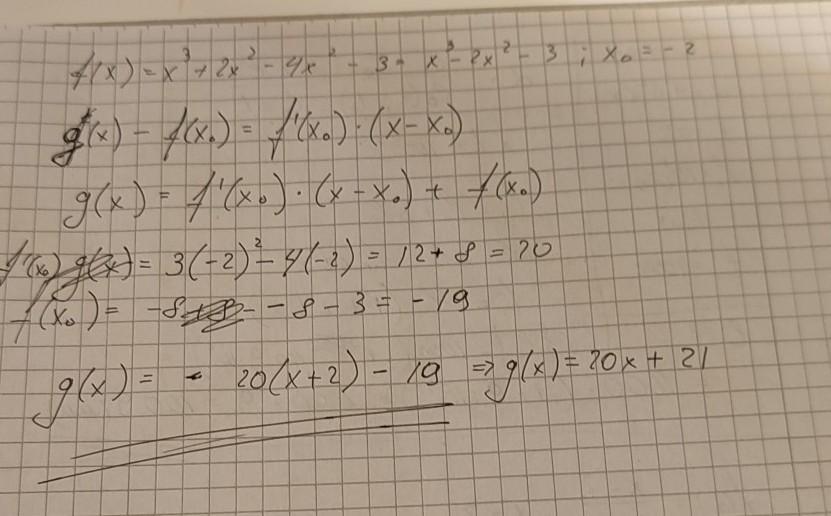 f(x) = x³ + 2x² - 4x² - 3 = x³ - 2x² - 3 ; x₀ = -2
g(x) - f(x₀) = f'(x₀) · (x - x₀)
g(x) = f'(x₀) · (x - x₀) + f(x₀)
f'(x₀) = 3(-2)² - 4(-2) = 12 + 8 = 20
f(x₀) = -8 - 8 - 3 = -19
g(x) = - 20(x+2) - 19 ⇒ g(x) = 20x + 21